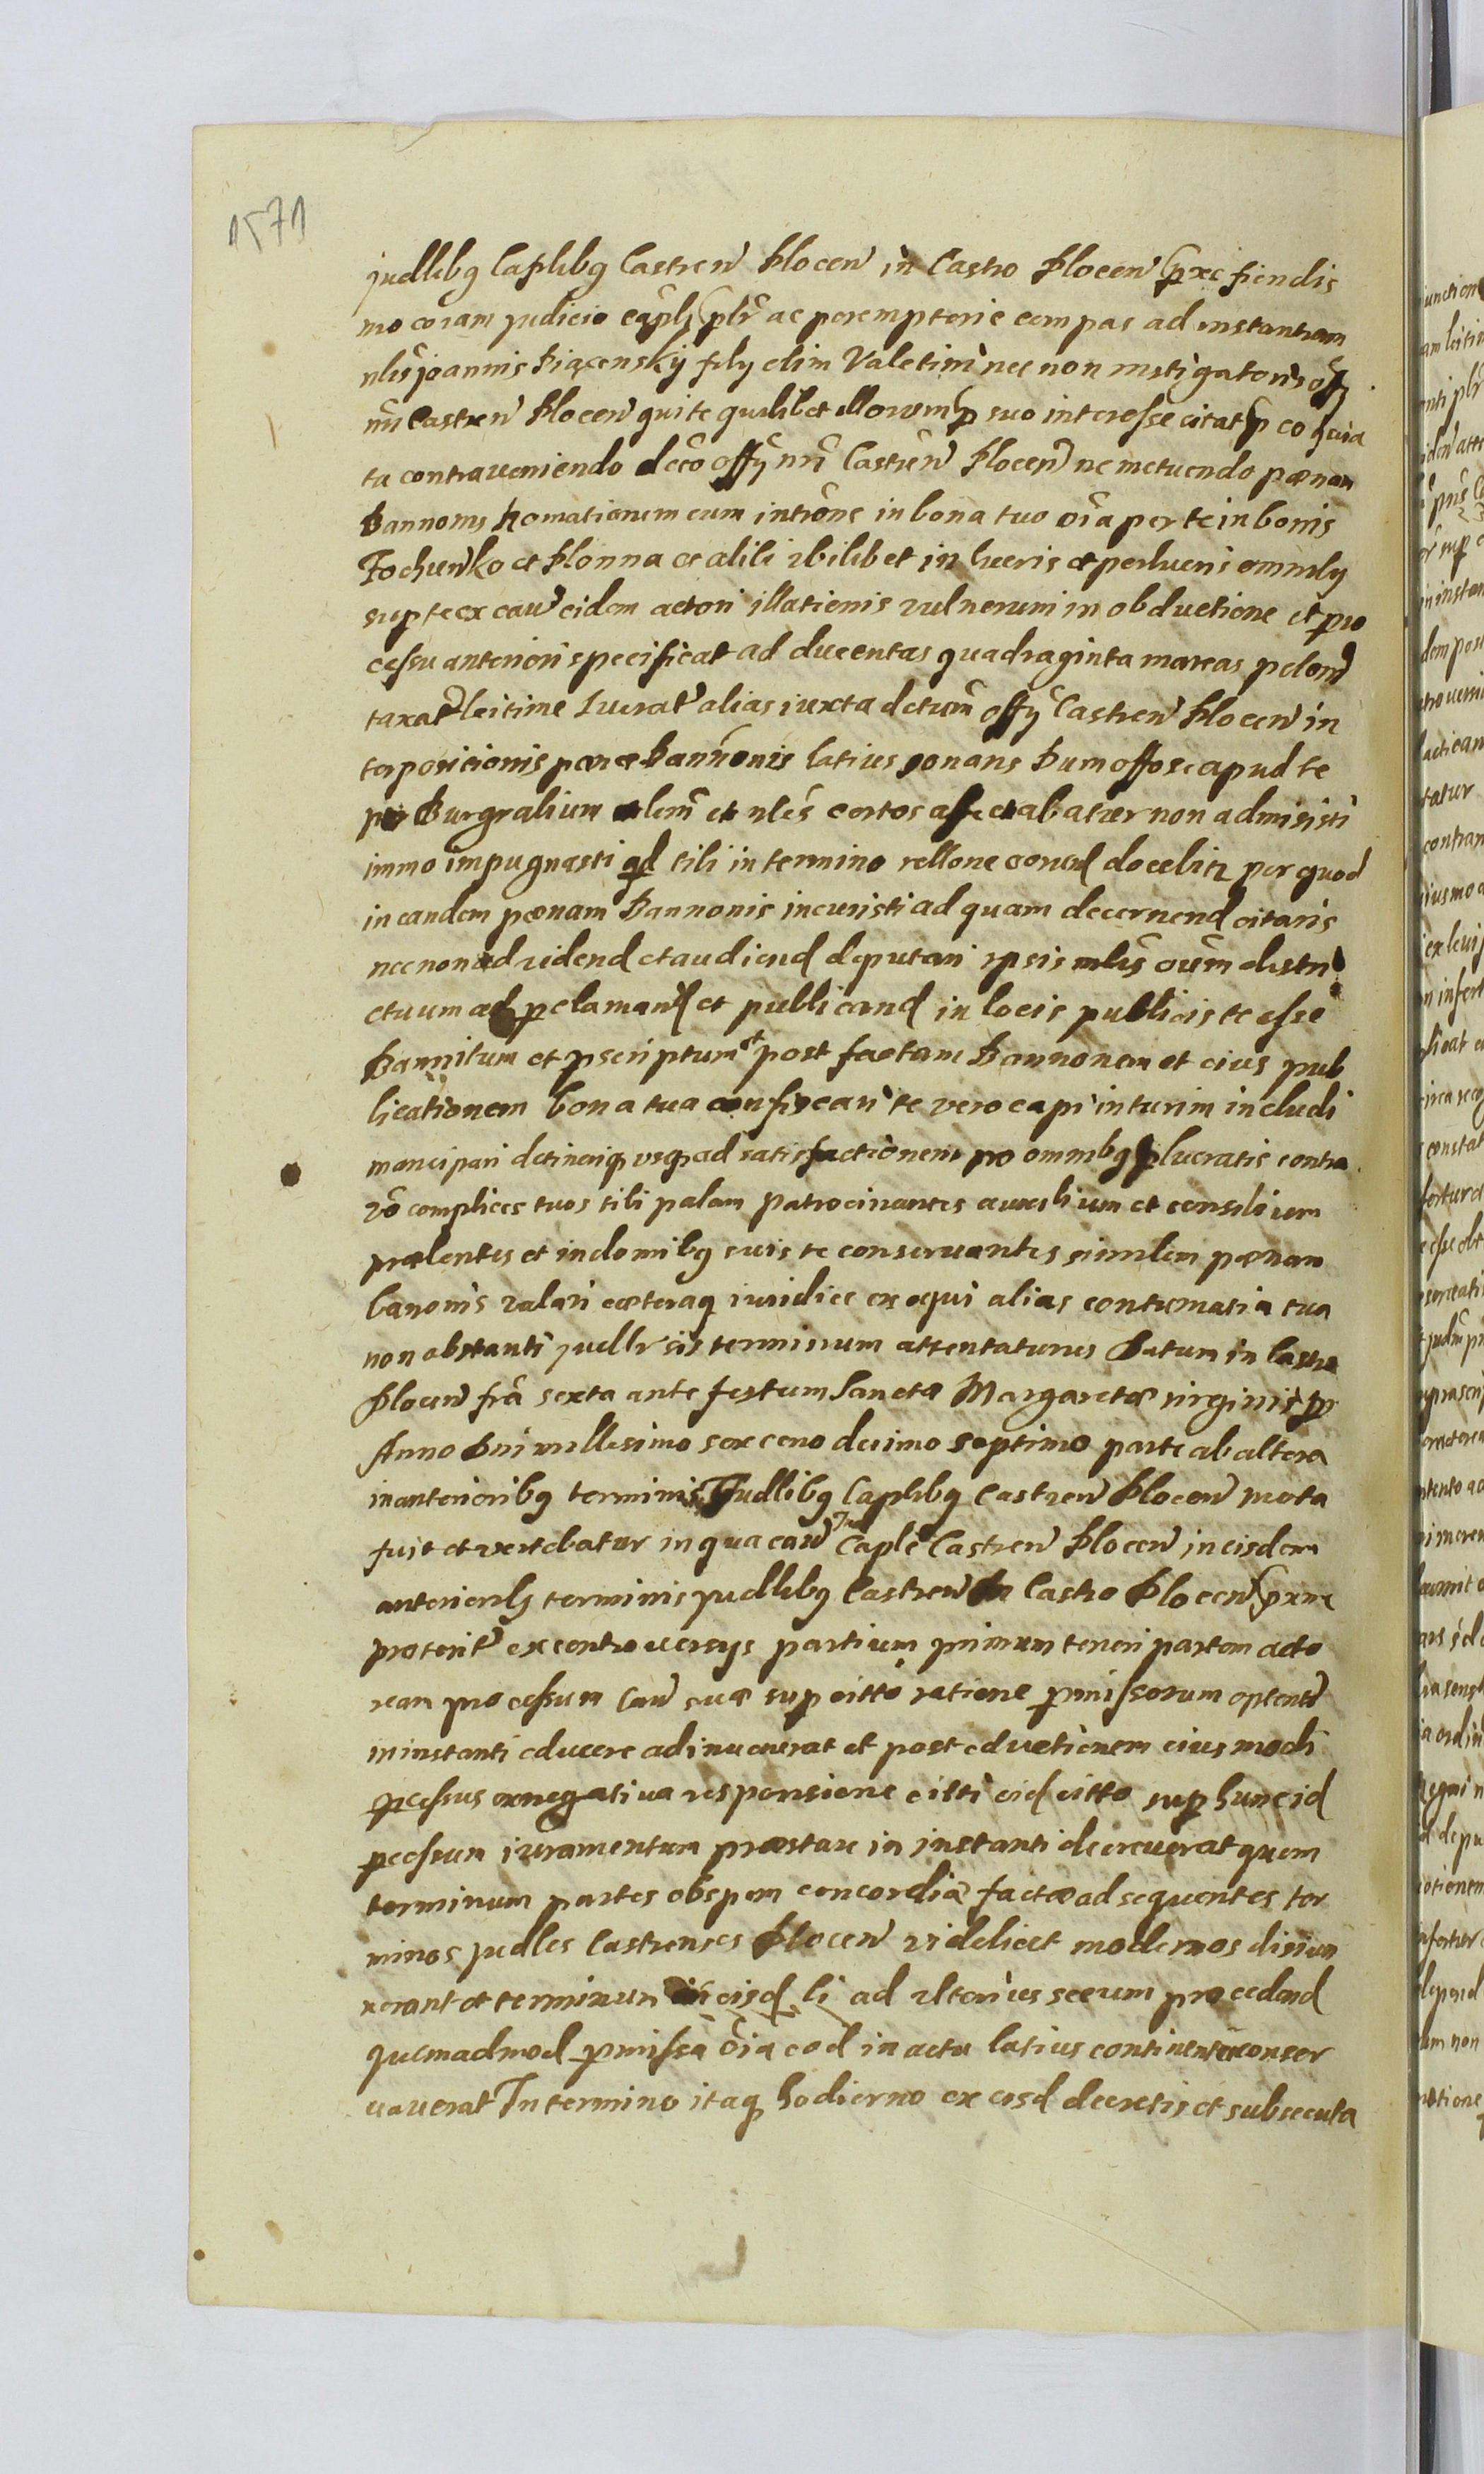 1571
judlibq Caplibq Castren Plocen in Castro Plocen proxe fiendis
mo coram judicio caplj plr ac peremptorie compas ad instantiam
nlis joannis Piączensky fily olim Valetini nec non instigatoris offy
nri Castren Plocen qui te quilibet illorum p suo interesse citat p eo quia
ta contraveniendo decō offy nri Castren Plocen ne metuendo pœnam
Bannonis cum intrōne in bona tua oīa per te in bonis
Fochunko et Plonna et alili vbilibet in lucris et perlucris omnibq
sup te ex cau eidem actori illationis vulnerum in obductione et pro
cessu anteriori specificat ad ducentas quadraginta marcas polon
taxat leitime lucrat alias iuxta detum offy Castren Plocen in
terposicionis pœnæ bannonis latius sonans Dum offose apud te
per Burgrabium nlem et nles certos affectabatur non admisisti
immo impugnasti qd tibi in termino rellone docebitr per quod
in eandem pœnam Bannonis incuristi ad quam decernend citaris
nec non ad videnď et audienď deputari ipsis nlis oium distri
ctuum ad pclamanď et publicanď in locis publicis te esse
Bannitum et pscriptum et post factam Bannonem et eius pub
licationem bona tua confiscari te vero capi in turim includi
mancipari detineriq vsq ad satisfactionem pro omnibq plucratis contra
vō complices tuos tibi palam patrocinantes auxilium et consilium
præbentes et in domibq suis te conservantes similem pœnam
banonis valari cæteraq iuridice exequi alias contumatia tua
non obstanti judlr sis terminum attentaturus Datum in Castro
Plocen fra sexta ante festum Sanctæ Margaretæ virginis pr
Anno Dni millesimo sexceno decimo septimo parte ab altera
in anterioribq terminis Judlibq Caplibq Castren Plocen mota
fuit et vertebatur in qua cau Ju Caple Castren Plocen in eisdem
anteriorib terminis judlibq Castren in Castro Plocen prxe
preterit ex controversys partium primum teneri partem acto
ream processum cau suæ sup citto ratione pmissorum optent
in instanti educere adinvenerat et post eductionem eiusmodi
pcessus ex negativa responsione citti eid citto sup hunc id
pcessum iuramentum præstare in instanti decreverat quem
terminum partes ob spem concordiæ factæ ad sequentes ter
minos judles Castrenses Plocen videlicet modernos disiun
xerant et terminum in eisd li ad vlterius secum procedend
quemadmod pmissa oīa eod in actu latius continentur conser
vaverat In termino itaq hodierno ex eisd decretis et subsecuta